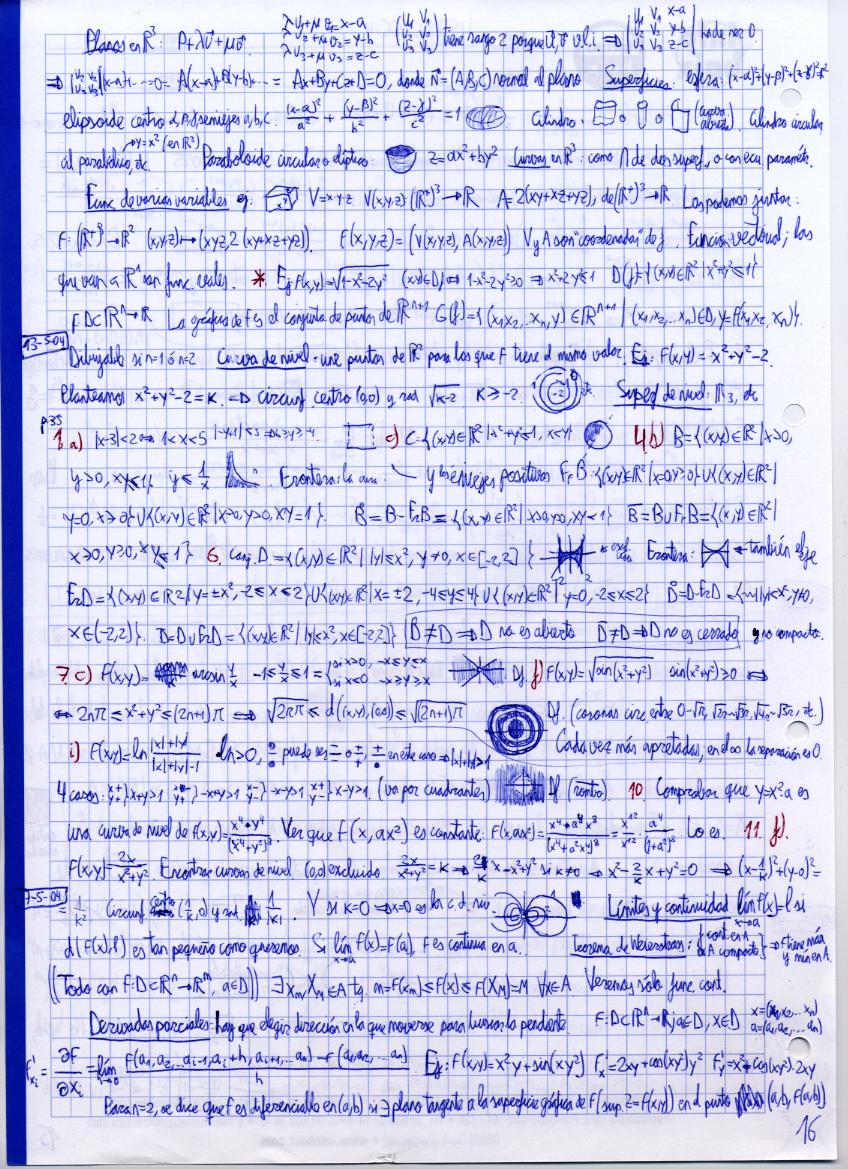 Planos en R³: P+λū+μv̄. λu₁+μv₁=x-a λu₂+μv₂=y-b λu₃+μv₃=z-c tiene rango 2 porque ū, v̄ l.i. ⇒ ha de ser 0.
= A(x-a)+B(y-b)+... = Ax+By+Cz+D=0, donde N̄=(A,B,C) normal al plano Superficies: esfera: (x-α)²+(y-β)²+(z-γ)²=R²
elipsoide centro α,β,γ semiejes a,b,c. (x-α)²/a² + (y-β)²/b² + (z-γ)²/c² = 1 Cilindro: (curva abierta). Cilindro circular
al parabólico, etc. →y=x² (en R³) Paraboloide circular o elíptico z=ax²+by² Curvas en R³: como ∩ de dos superf., o con ecu. paramétr.
Func de varias variables eg: V=x·y·z V(x,y,z): (R⁺)³→R A=2(xy+xz+yz), de (R⁺)³→R Las podemos juntar:
F: (R⁺)³→R² (x,y,z)↦(xyz, 2(xy+xz+yz)). F(x,y,z)=(V(x,y,z), A(x,y,z)) V y A son "coordenadas" de f. Función vectorial; las
que van a R¹ son func. reales. * Ej: f(x,y)=√(1-x²-2y²) (x,y)∈D ⇔ 1-x²-2y²≥0 ⇒ x²+2y²≤1 D(f)={(x,y)∈R² | x²+2y²≤1}
f: D⊂Rⁿ→R La gráfica de f es el conjunto de puntos de Rⁿ⁺¹ G(f)={(x₁,x₂,...xₙ,y)∈Rⁿ⁺¹ | (x₁,x₂,...xₙ)∈D, y=f(x₁,x₂,xₙ)}.
13-5-04 Dibujable si n=1 ó n=2 Curva de nivel: une puntos de R² para los que F tiene el mismo valor. Ej: F(x,y)=x²+y²-2.
Planteamos x²+y²-2=K ⇒ circunf. centro (0,0) y rad √(K-2) K≥-2. Superf de nivel: R₃, etc
p35
1 a) |x-3|<2 ⇒ 1<x<5 c) C={(x,y)∈R² | x²+y²≤1, x<y} 4 b) B={(x,y)∈R² | x>0,
y>0, xy≤1} y≤1/x Frontera: la curva y los semiejes positivos Fr B={(x,y)∈R² | x=0, y≥0}∪{(x,y)∈R² |
y=0, x≥0}∪{(x,y)∈R² | x>0, y>0, xy=1}. B̊=B-FrB={(x,y)∈R² | x>0, y>0, xy<1} B̄=B∪FrB={(x,y)∈R² |
x≥0, y≥0, xy≤1} 6. Conj. D={(x,y)∈R² | |y|≤x², y≠0, x∈[-2,2]} Frontera: ← también el eje
FrD={(x,y)∈R² | y=±x², -2≤x≤2}∪{(x,y)∈R² | x=±2, -4≤y≤4}∪{(x,y)∈R² | y=0, -2≤x≤2} D̊=D-FrD={~||y|<x², y≠0,
x∈(-2,2)}. D̄=D∪FrD={(x,y)∈R² | |y|≤x², x∈[-2,2]} D̊≠D ⇒ D no es abierto D̄≠D ⇒ D no es cerrado y no compacto.
7. c) F(x,y)= arcsin y/x -1≤y/x≤1 = si x>0, -x≤y≤x si x<0, -x≥y≥x Df. f) F(x,y)=√(sin(x²+y²)) sin(x²+y²)≥0 ⇔
⇔ 2nπ≤x²+y²≤(2n+1)π ⇒ √(2nπ)≤d((x,y),(0,0))≤√((2n+1)π) Df. (coronas circ, entre 0-√π, √2π-√3π, √4π-√5π, etc.)
Cada vez más apretadas, en el ∞ la separación es 0.
i) F(x,y)=ln (|x|+|y|)/(|x|+|y|-1) ln>0, puede ser o en este caso ⇒ |x|+|y|>1
4 casos: x+ y+ } x+y>1 x- y+ } -x+y>1 x- y- } -x-y>1 x+ y- } x-y>1. (va por cuadrantes) Df. (rombo). 10 Comprobar que y=x²·a es
una curva de nivel de f(x,y)=(x⁴·y⁴)/(x⁴+y²)³. Ver que f(x,ax²) es constante: F(x,ax²)=(x⁴·a⁴x⁸)/(x⁴+a²x⁴)³=x¹²/x¹²·a⁴/(1+a²)³. Lo es. 11. f).
F(x,y)=2x/(x²+y²). Encontrar curvas de nivel (0,0) excluido 2x/(x²+y²)=K ⇒ 2/K x=x²+y² si K≠0 ⇒ x²-2/K x+y²=0 ⇒ (x-1/K)²+(y-0)²=
7-5-04 =1/K² Circunf centro (1/K,0) y rad 1/|K| Y si K=0 ⇒ x=0 es la c.d. niv Límites y continuidad lím f(x)=l si x→a
d(f(x),l) es tan pequeño como queremos. Si lím f(x)=f(a), f es continua en a. x→a Teorema de Weierstrass: { f cont. en A A compacto } ⇒ f tiene máx y mín en A.
((Todo con f: D⊂Rⁿ→Rᵐ, a∈D)) ∃xₘ, X_M∈A tq. m=f(xₘ)≤f(x)≤f(X_M)=M ∀x∈A Veremos sólo func. cont.
Derivadas parciales: hay que elegir dirección en la que moverse para buscar la pendiente. F: D⊂Rⁿ→R, a∈D, x∈D x=(x₁,x₂,...xₙ) a=(a₁,a₂,...aₙ)
f'xᵢ = ∂f/∂xᵢ = lím h→0 (f(a₁,a₂,...aᵢ₋₁,aᵢ+h,aᵢ₊₁,...aₙ)-f(a₁,a₂,...aₙ))/h Ej: F(x,y)=x²y+sin(xy²) f'x=2xy+cos(xy²)y² f'y=x²+cos(xy²)·2xy
Para n=2, se dice que f es diferenciable en (a,b) si ∃ plano tangente a la superficie gráfica de f (sup. z=f(x,y)) en el punto (a,b,f(a,b))
16